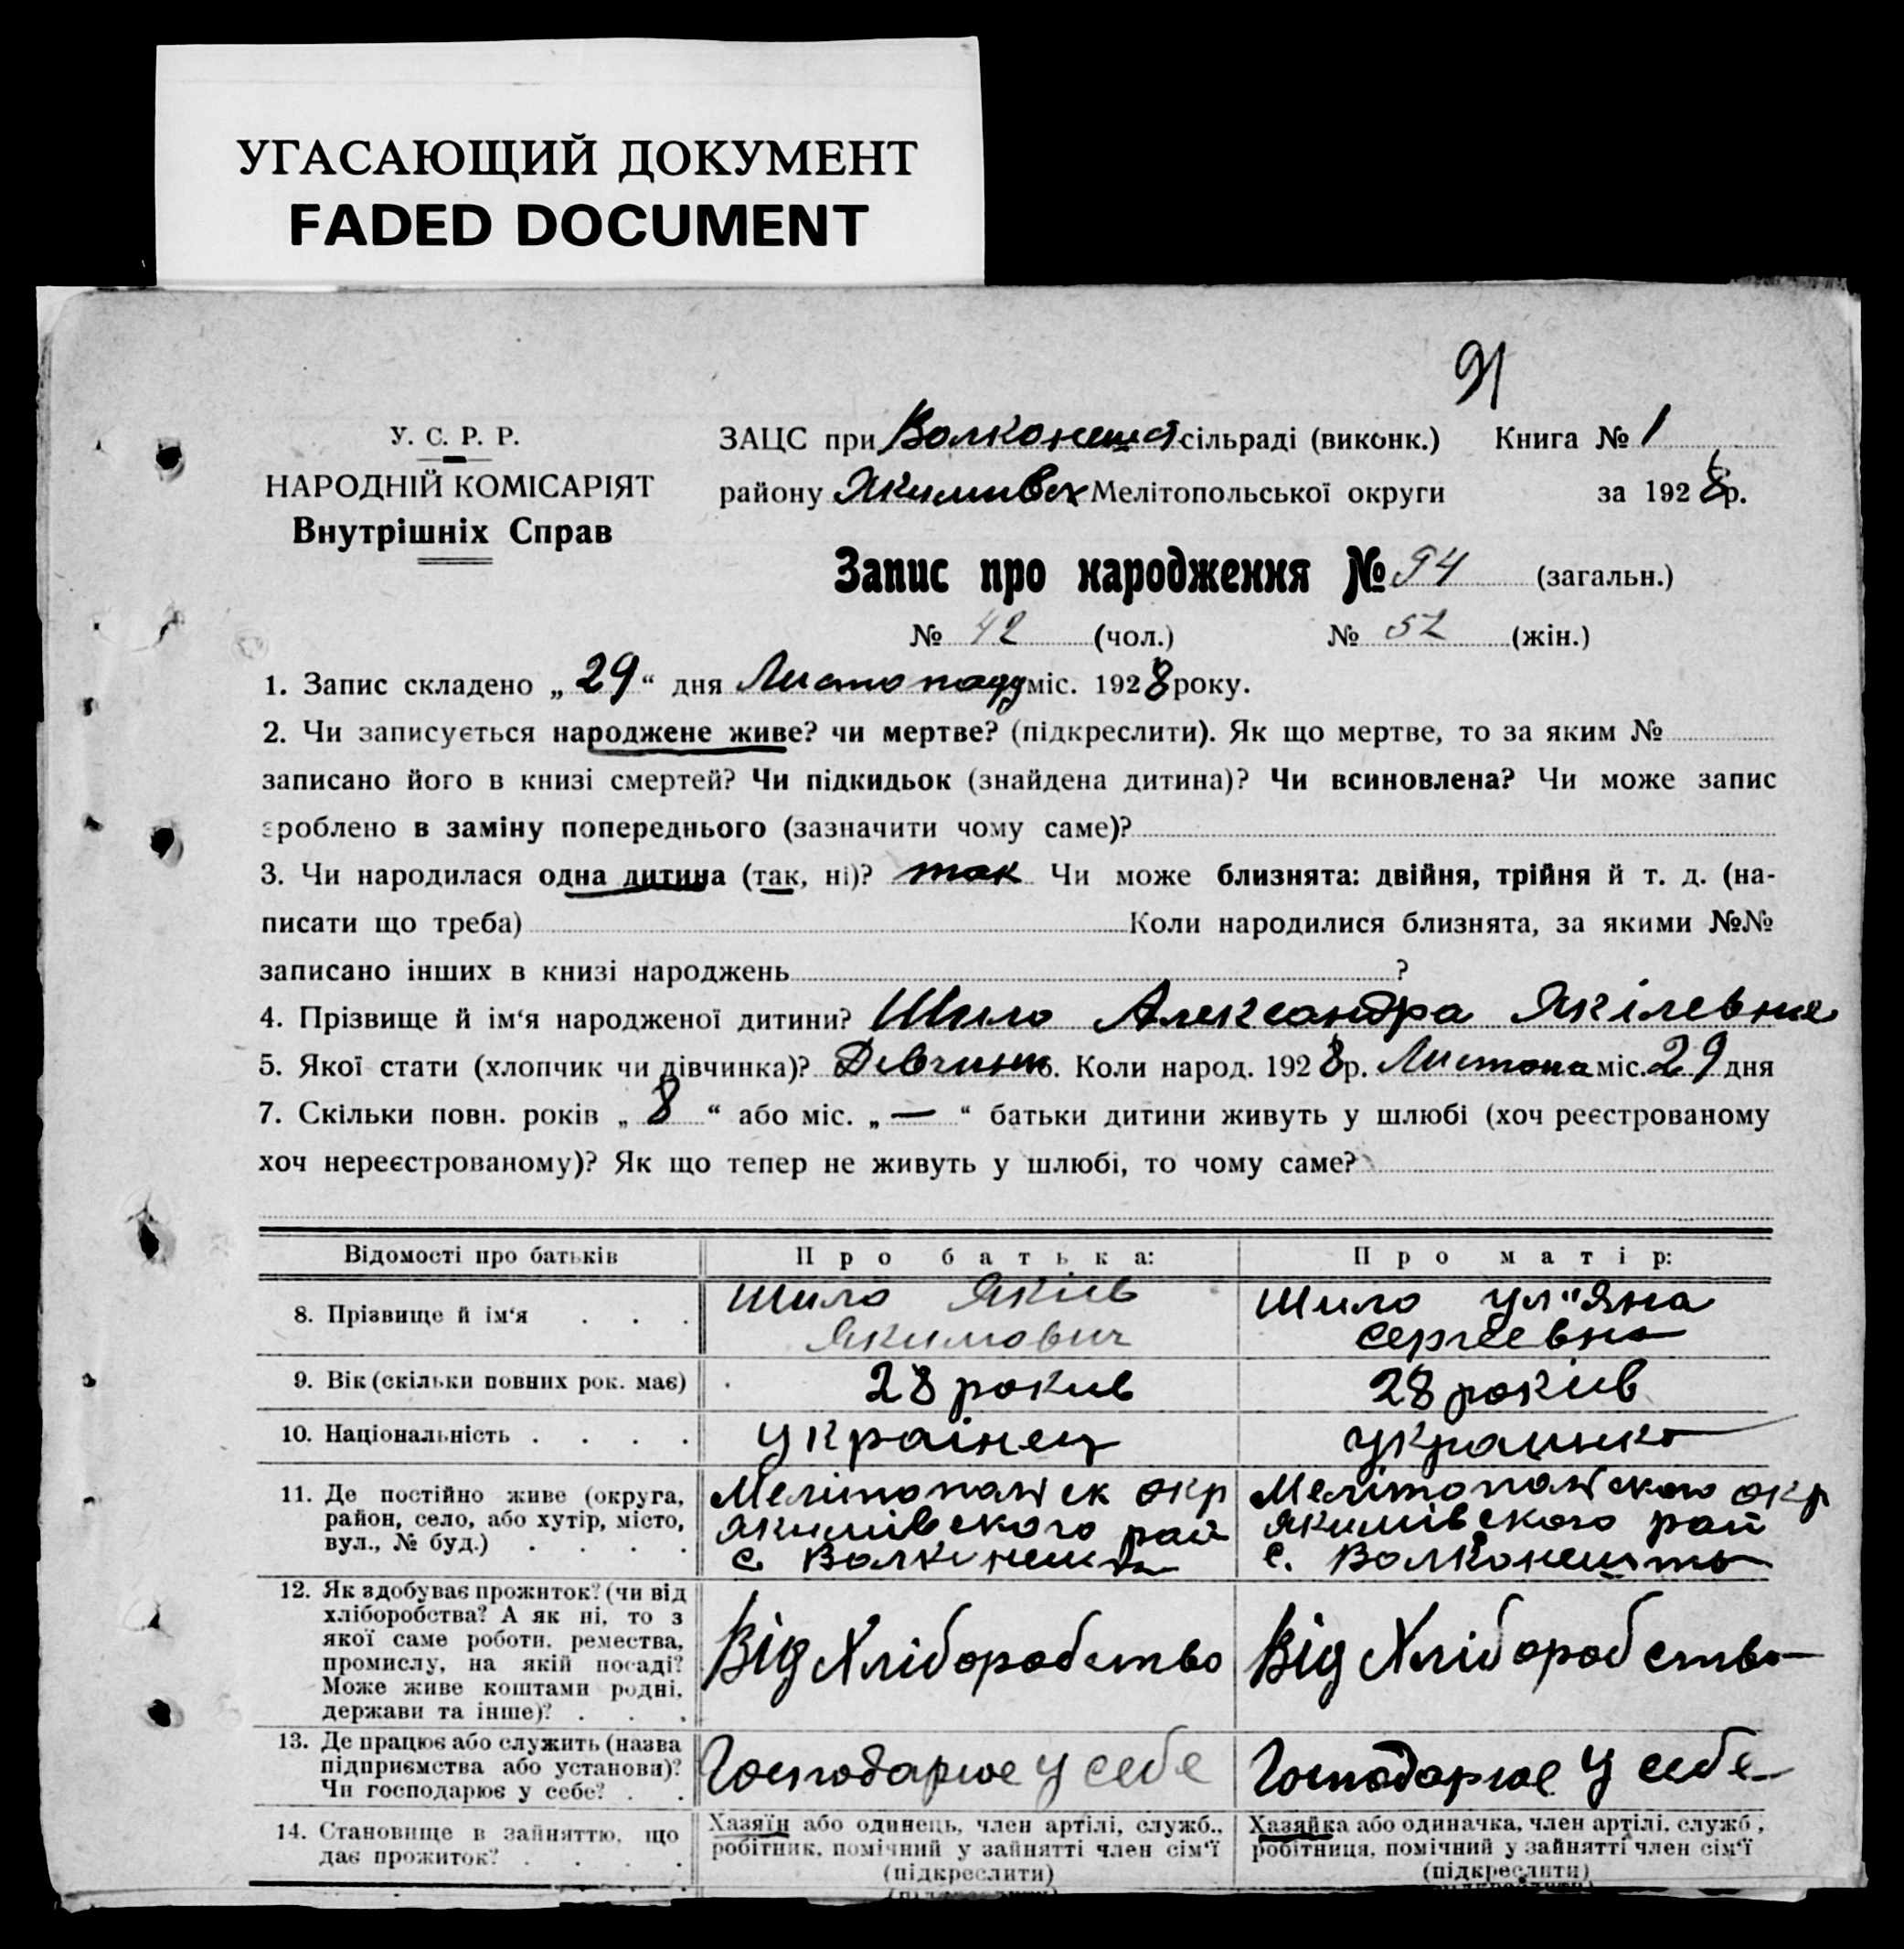 УГАСАЮЩИЙ ДОКУМЕНТ
FADED DOCUMENT
91
У. С. Р. Р.
НАРОДНІЙ КОМІСАРІЯТ
Внутрішніх Справ
ЗАЦС при Волконешт сільраді (виконк.) Книга № 1
району Якимивск Мелітопольської округи за 1928 р.
Запис про народження № 94 (загальн.)
№ 42 (чол.) № 52 (жін.)
1. Запис складено „ 29 “ дня Листопаду міс. 1928 року.
2. Чи записується народжене живе? чи мертве? (підкреслити). Як що мертве, то за яким №
записано його в книзі смертей? Чи підкидьок (знайдена дитина)? Чи всиновлена? Чи може запис
зроблено в заміну попереднього (зазначити чому саме)?
3. Чи народилася одна дитина (так, ні)? так Чи може близнята: двійня, трійня й т. д. (на-
писати що треба) Коли народилися близнята, за якими №№
записано інших в книзі народжень ?
4. Прізвище й ім‘я народженої дитини? Шило Александра Якілевна
5. Якої стати (хлопчик чи дівчинка)? Девчинк 6. Коли народ. 1928 р. Листопа міс. 29 дня
7. Скільки повн. років „ 8 “ або міс. „ — “ батьки дитини живуть у шлюбі (хоч реєстрованому
хоч нереєстрованому)? Як що тепер не живуть у шлюбі, то чому саме?
Відомості про батьків Про батька: Про матір:
8. Прізвище й ім‘я . . . Шило Якив Шило Ул"яна
Якимович Сергеевна
9. Вік (скільки повних рок. має) 28 рокив 28 рокив
10. Національність . . . . Украінец Украинка
11. Де постійно живе (округа, район, село, або хутір, місто, вул., № буд.) . . . .
Мелитопольск окр Мелітопольского окр
Якимівского рай Якимівского рай
с. Волконешты с. Волконешты
12. Як здобуває прожиток? (чи від хліборобства? А як ні, то з якої саме роботи, ремества, промислу, на якій посаді? Може живе коштами родні, держави та інше)? . . .
Від Хлібороботво Від Хліборобство
13. Де працює або служить (назва підприємства або установи)? Чи господарює у себе? . .
Господарює у себе Господарює у себе
14. Становище в зайняттю, що дає прожиток? . . . .
Хазяїн або одинець, член артілі, служб., Хазяйка або одиначка, член артілі, служб.,
робітник, помічний у зайнятті член сім‘ї робітниця, помічний у зайнятті член сім‘ї
(підкреслити) (підкреслити)